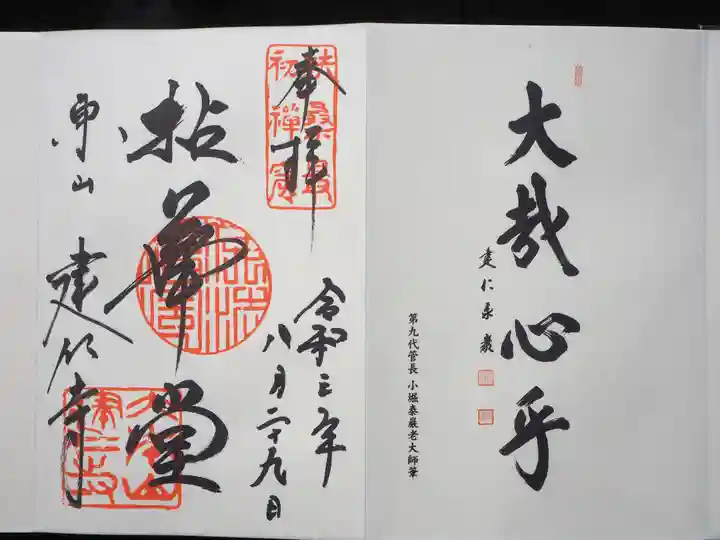 大哉心乎
建仁泰巖
第九代管長 小堀泰巖老大師筆
奉拝
扶桑最初禅窟
令和三年
八月二十九日
拈華堂
東山 建仁寺